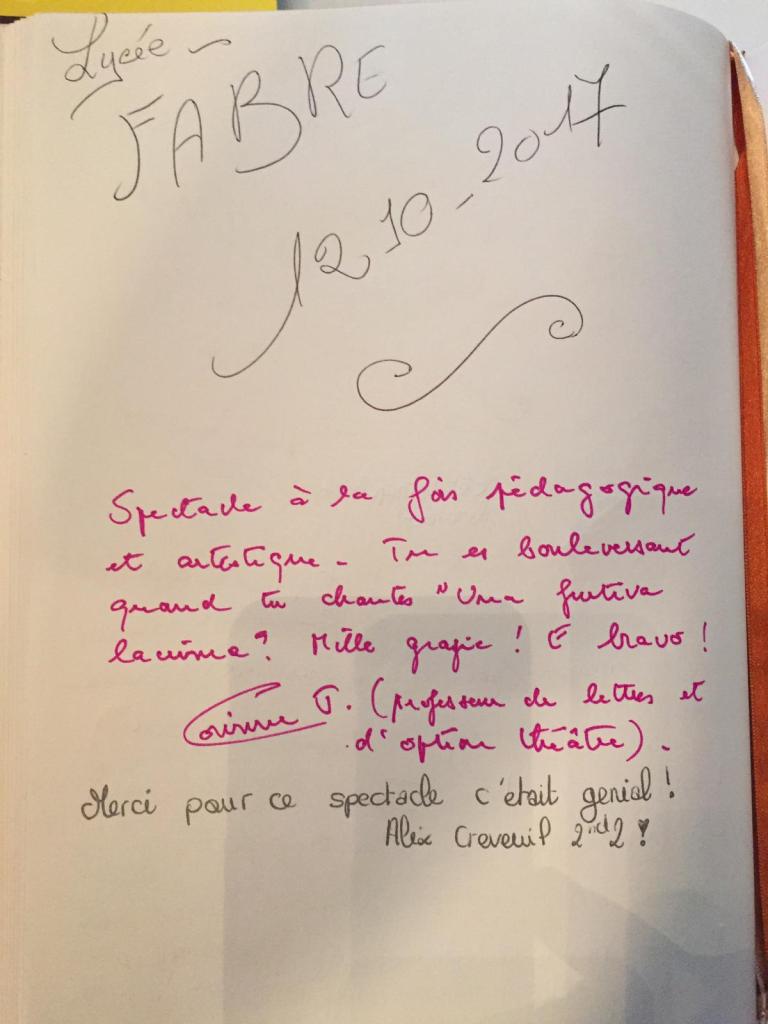 Lycée
FABRE
12 10 - 2017
Spectacle à la fois pédagogique
et artistique - Tu es bouleversant
quand tu chantes "Una furtiva
lacrima". Mille grazie ! E bravo !
Corinne T. (professeur de lettres et
d'option théâtre).
Merci pour ce spectacle c'était genial !
Alix 2nd2 !